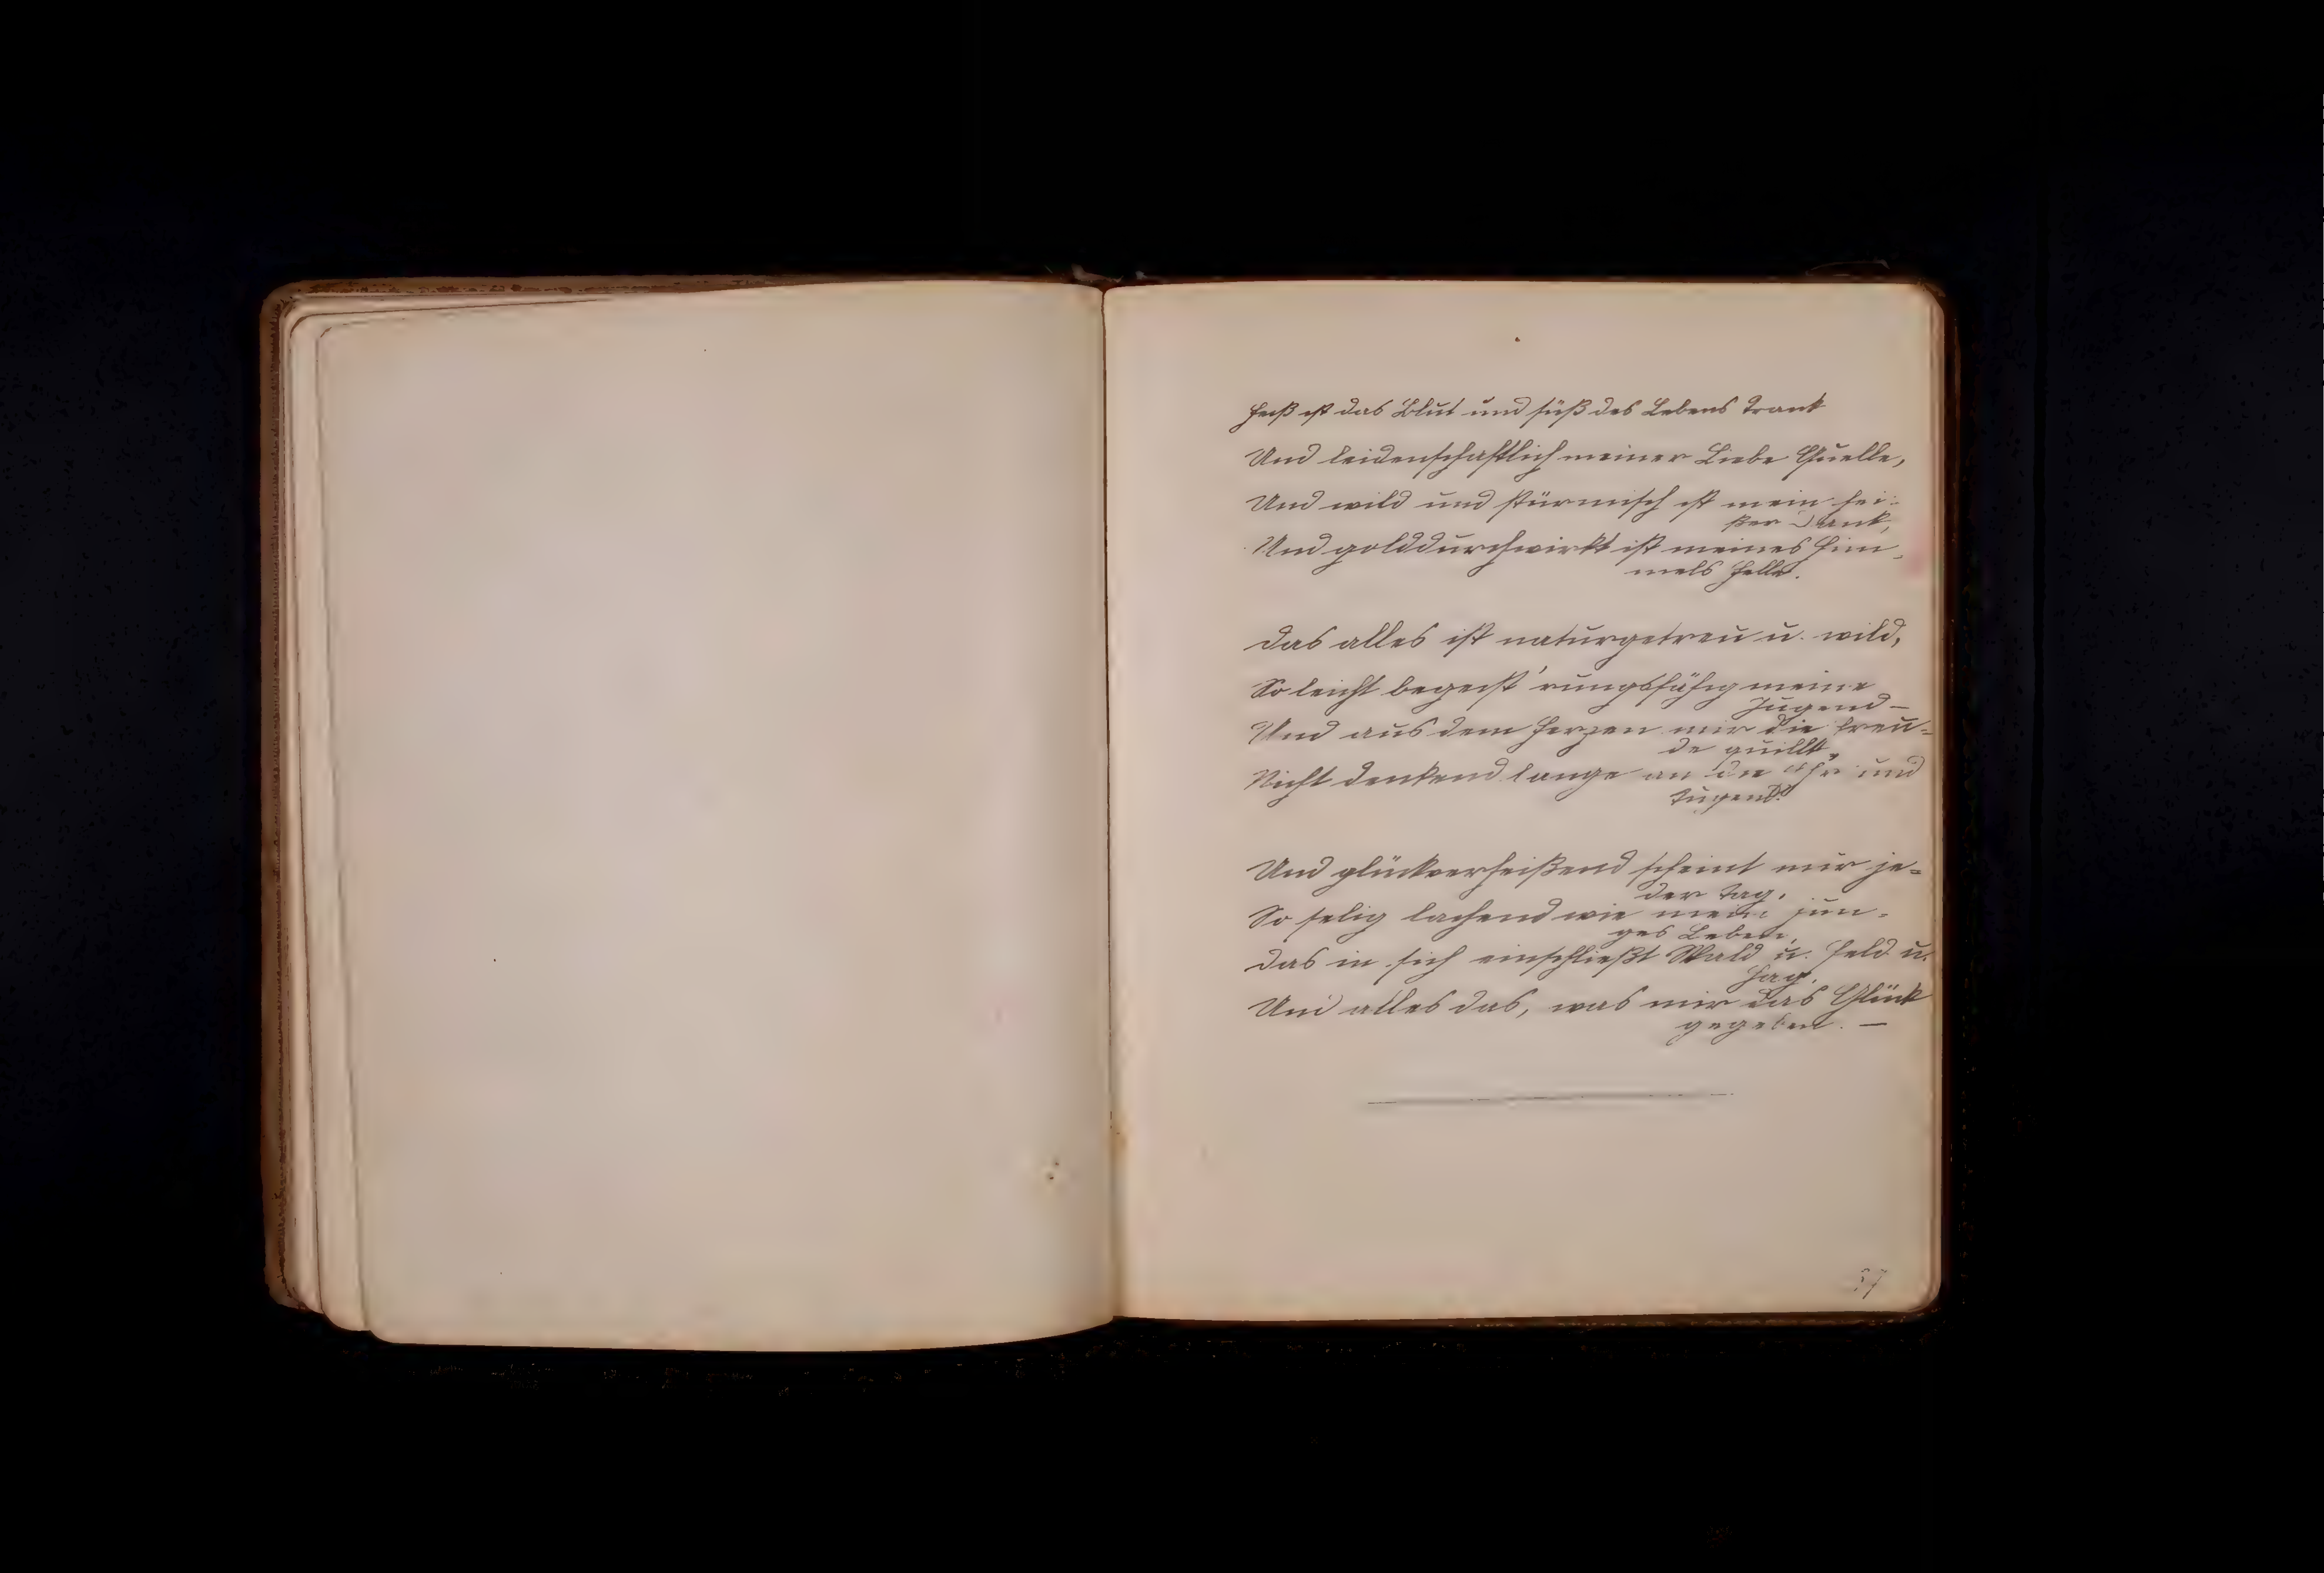 Heiß ist das Blut und süß des Lebens Trank
Und leidenschaftlich meiner Liebe Quelle,
Und wild und stürmisch ist mein hei-
ßer Dank,
Und golddurchwirkt ist meines Him-
mels Helle.
Das alles ist naturgetreu u. wild,
So leicht begeist'rungsfähig meine
Jugend –
Und aus dem Herzen mir die Freu-
de quillt,
Nicht denkend lange an die "Ehr und
Tugend."
Und glückverheißend scheint mir je-
der Tag,
So selig lachend wie mein jun-
ges Leben,
Das in sich einschließt Wald u. Feld u.
Hag,
Und alles das, was mir das Glück
gegeben. –
57